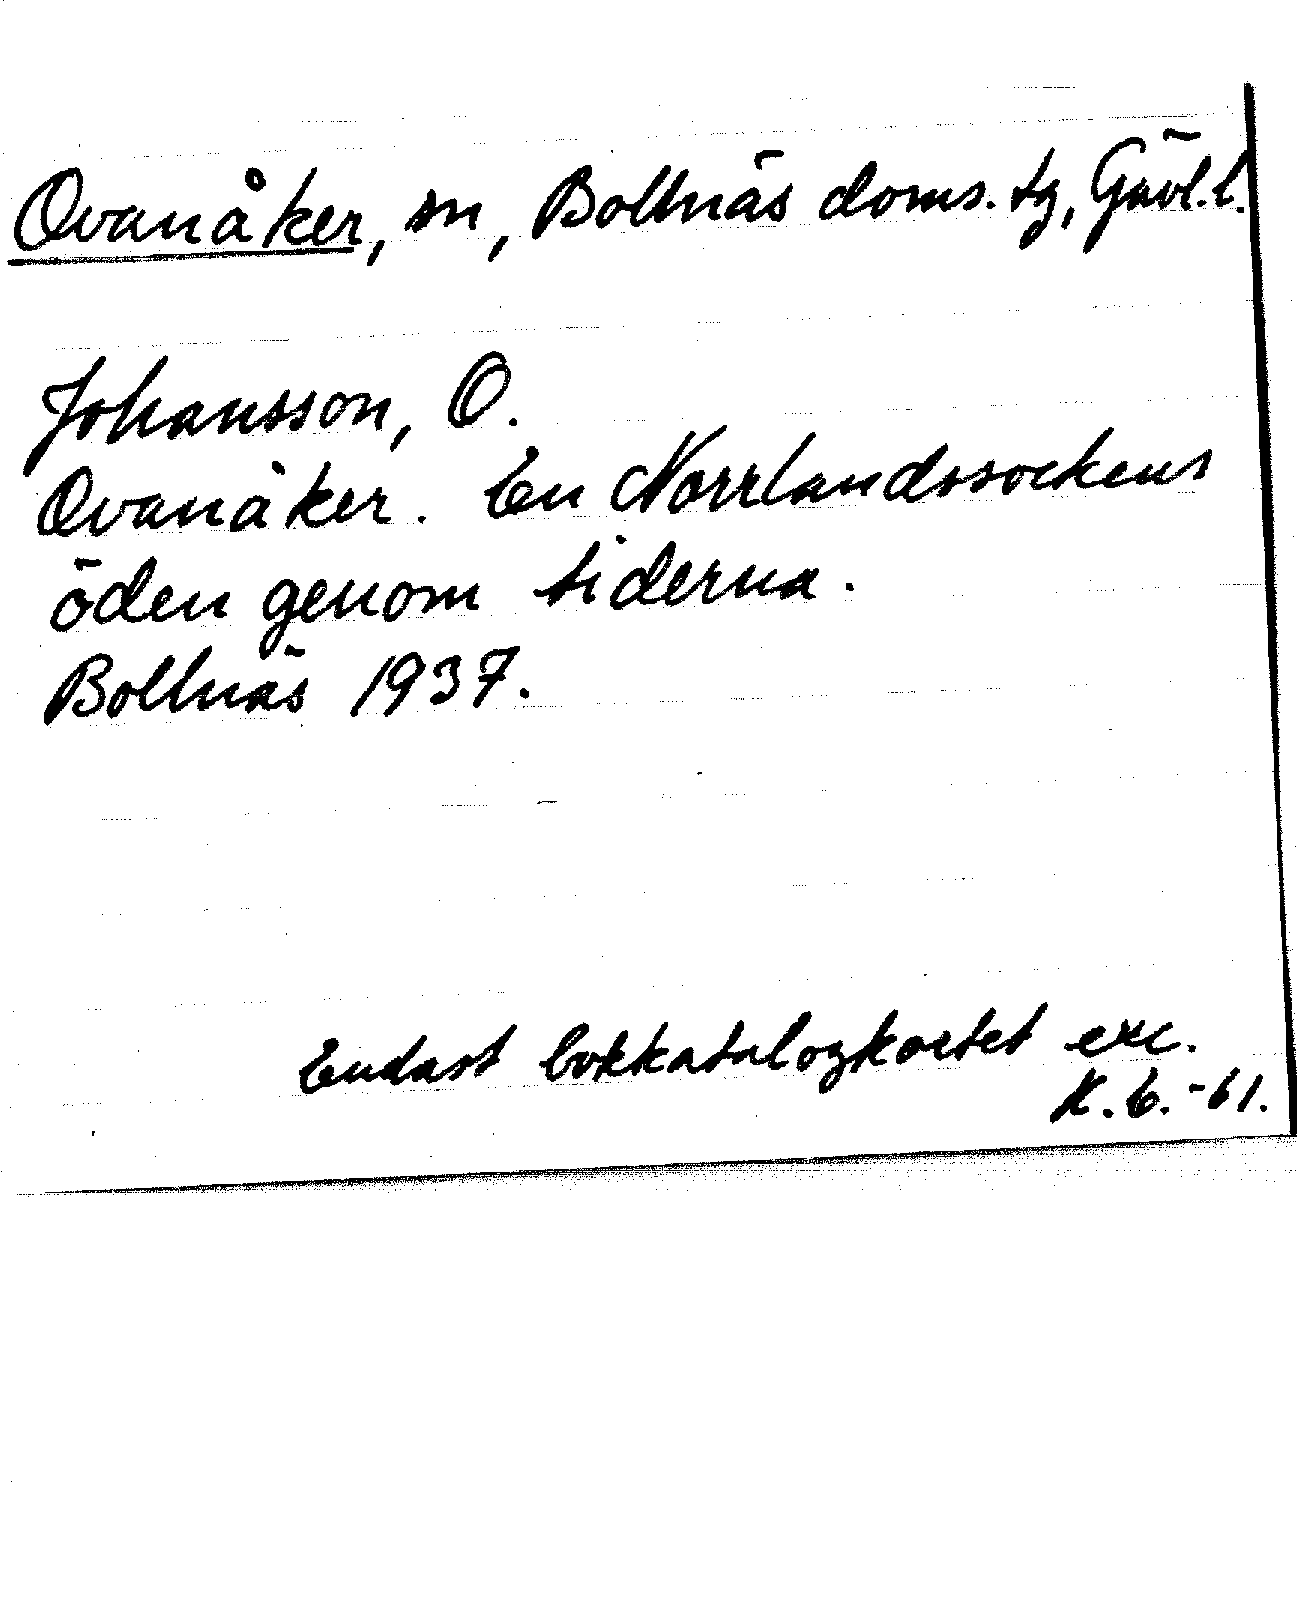 Ovanåker, sn, Bollnäs doms. tg, Gävl. l.
Johansson, O.
Ovanåker. En Norrlandssockens
öden genom tiderna.
Bollnäs 1937.
Endast bokkatalogkortet exc.
K. G. -61.